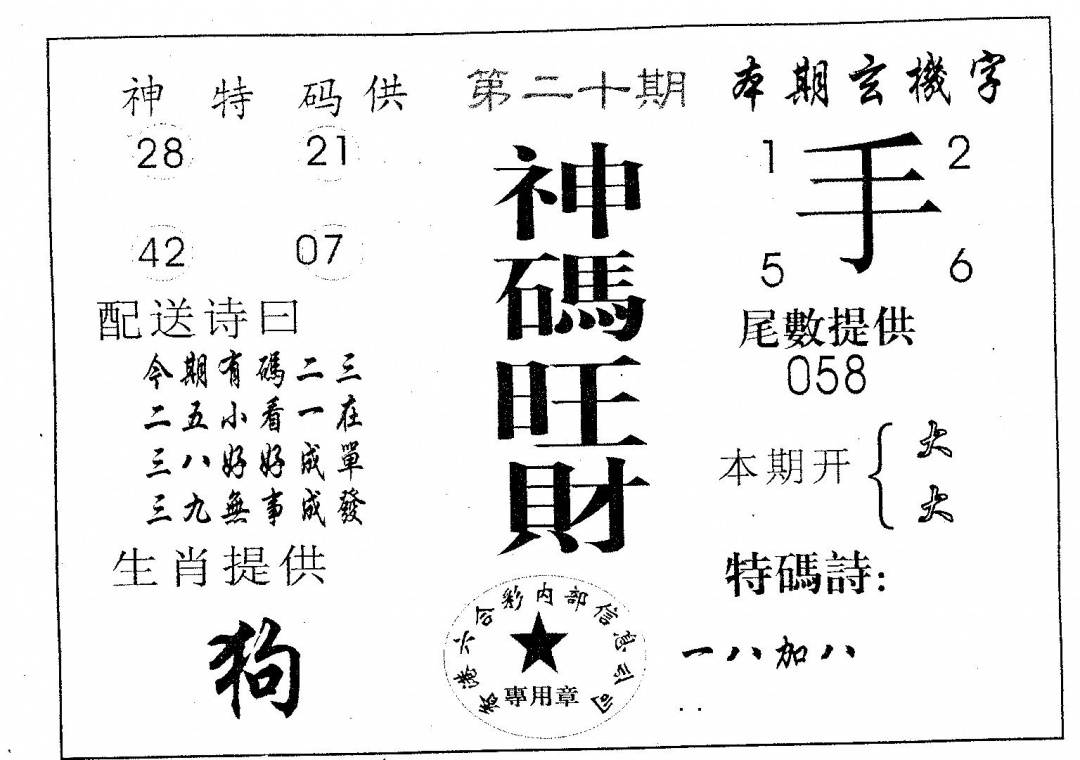 神特码供
28 21
42 07
配送诗曰
今期有碼二三
二五小看一在
三八好好成單
三九無事成發
生肖提供
狗
第二十期
神碼旺財
香港六合彩内部信息公司
專用章
本期玄機字
1 手 2
5 6
尾數提供
058
本期开{大
大
特碼詩:
一八加八